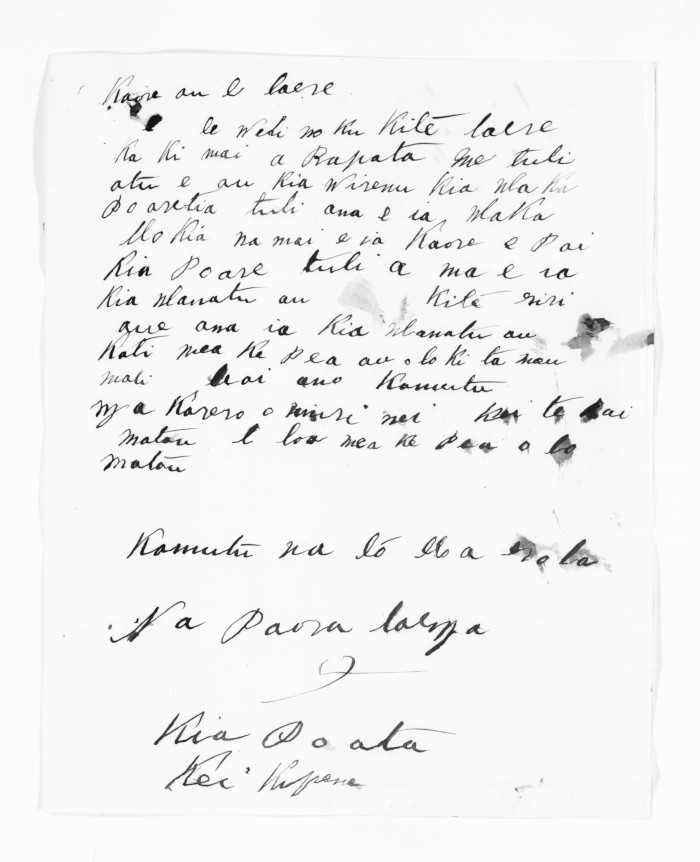 Kaore au e taere
te weti no ku kite taere
ka ki mai a Rapata me tuti
atu e au kia wiremu kia Mlaka
Poaretia tuti ana e ia Mlaka
Mokia na mai e ia Kaore e Pai
Kia Poare tuti a ma e ia
kia Mlanatu au kite riri
ana ia kia Mlanatu au
Kati mea ke Pea au o to ki ta mau
mati hoi ano Kamutu
nga Korero o muri nei kei te Pai
matau e toa mea ke Pea o to
matau
Kamutu na to Hoa
Na Paora taenga
Kia Poata
Kei Kupene